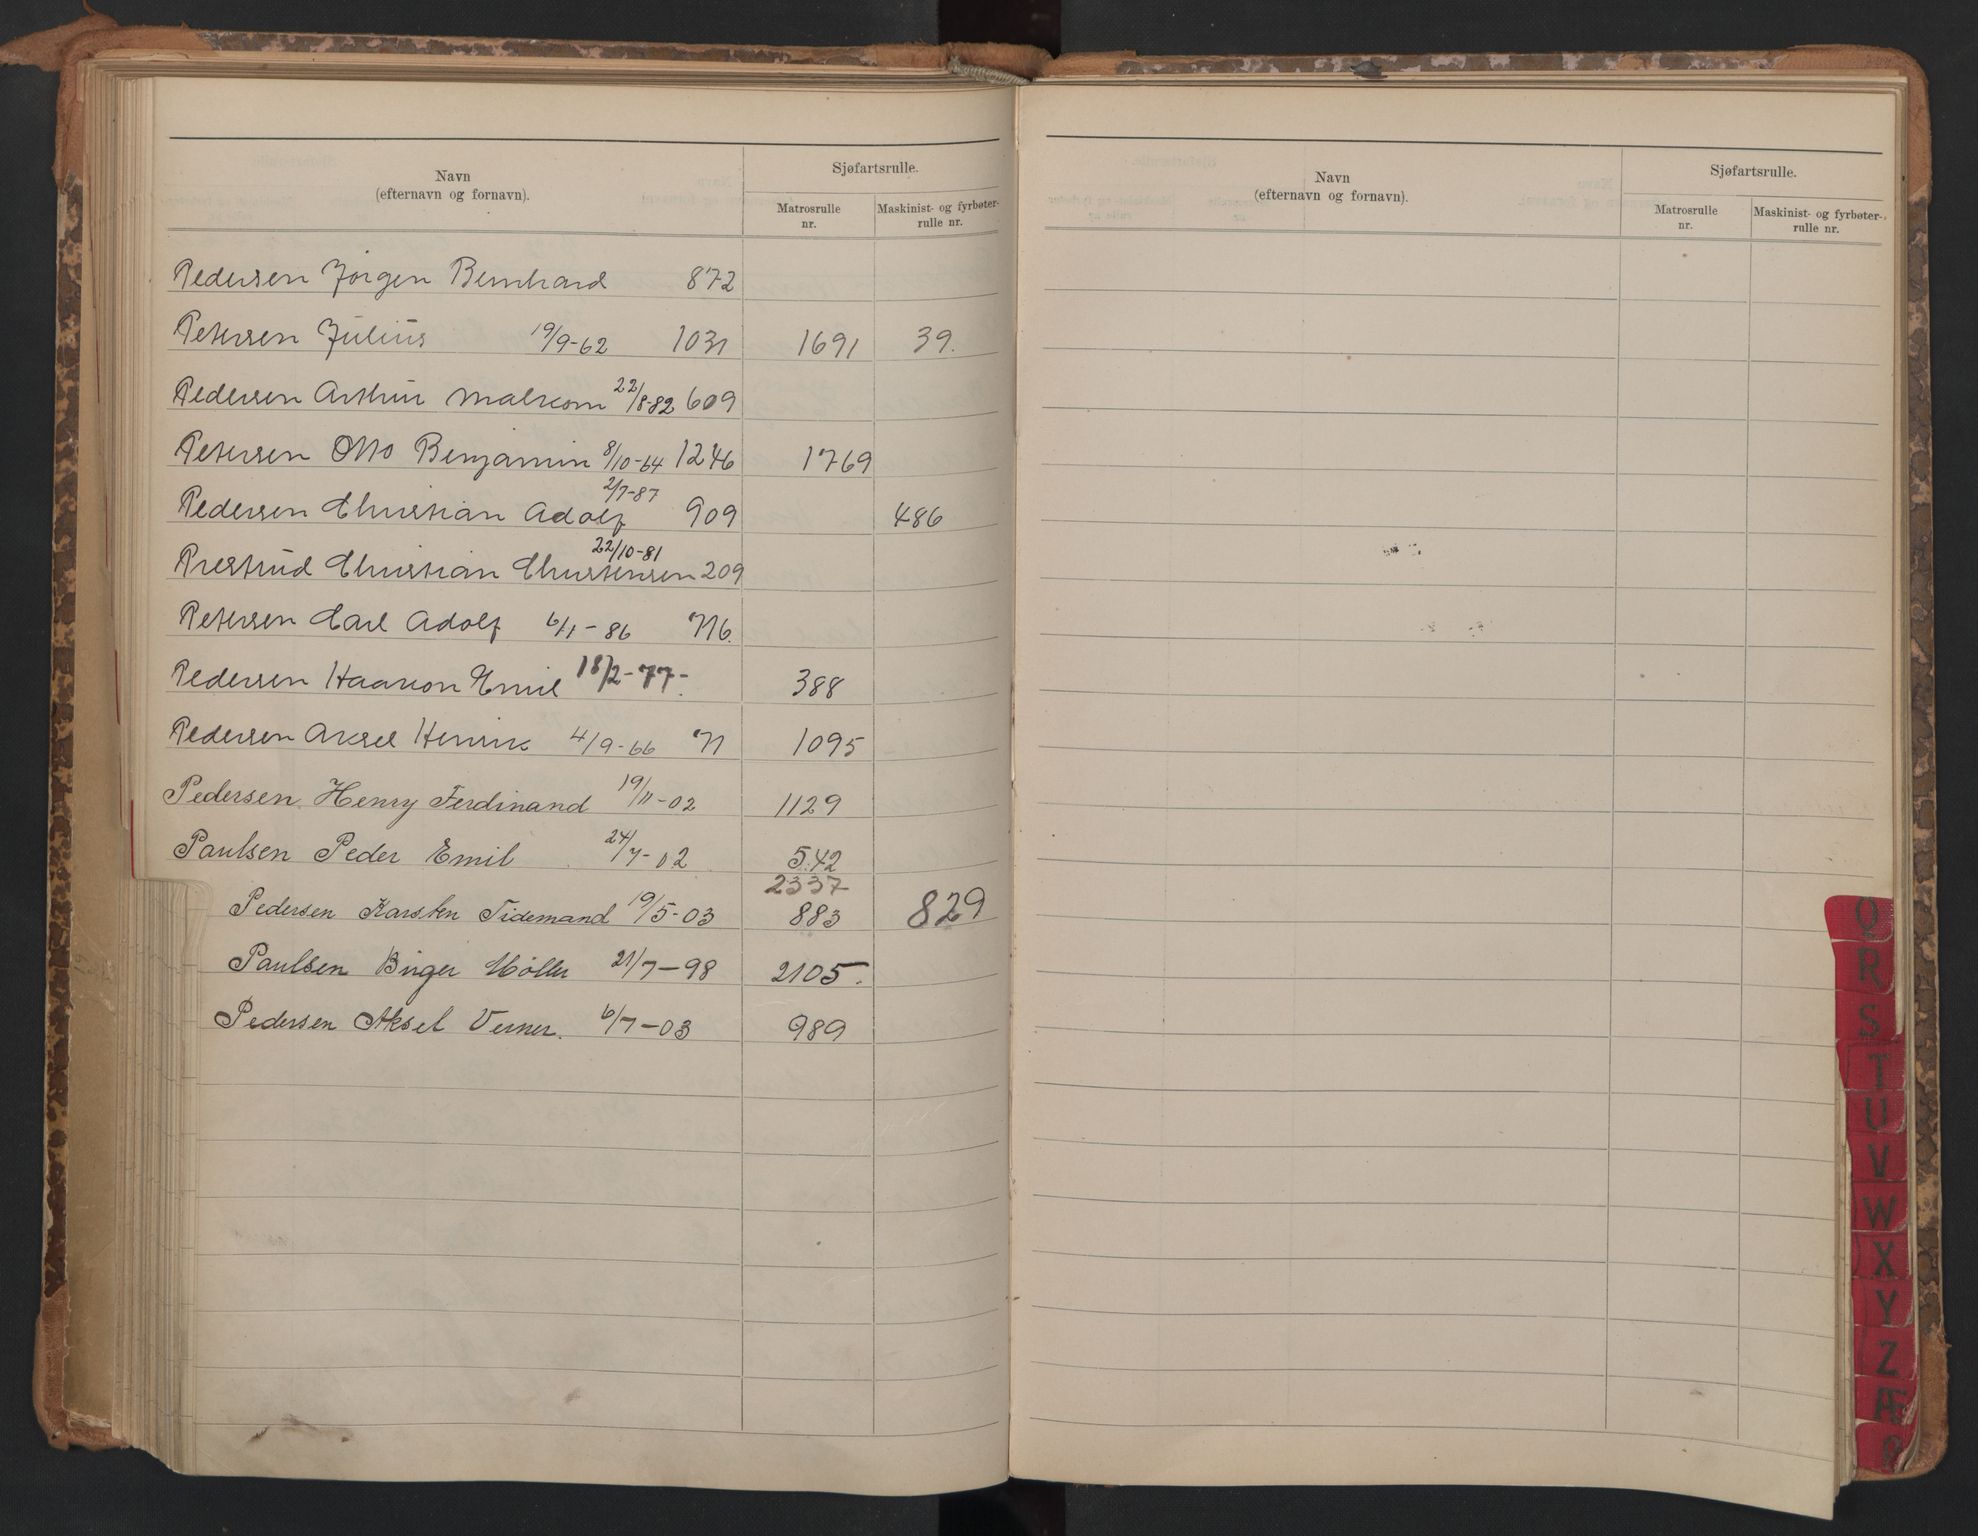 Navn
(efternavn og fornavn).
Sjøfartsrulle.
Matrosrulle
nr.
Maskinist- og fyrbøter-
rulle nr.
Pedersen Jörgen Bernhard 872
Petersen Julius 19/9-62 1031 1691 39.
Pedersen Arthur Malkom 22/8-82 609
Petersen Otto Benjamin 8/10-64 1246 1769
Pedersen Christian Adolf 2/7-87 909 486
Prestrud Christian Christensen 22/10-81 209
Petersen Carl Adolf 6/1-86 716.
Pedersen Haakon Emil 18/2-77- 388
Pedersen Aksel Henrik 4/9-66 71 1095
Pedersen Henry Ferdinand 19/11-02 1129
Paulsen Peder Emil 24/7-02 542
2337
Pedersen Karsten Tidemand 19/5-03 883 829
Paulsen Birger Möller 21/7-98 2105.
Pedersen Aksel Verner. 6/7-03 989
Navn
(efternavn og fornavn).
Sjøfartsrulle.
Matrosrulle
nr.
Maskinist- og fyrbøter-
rulle nr.
Q
R
S
T
U
V
W
X
Y
Z
Æ